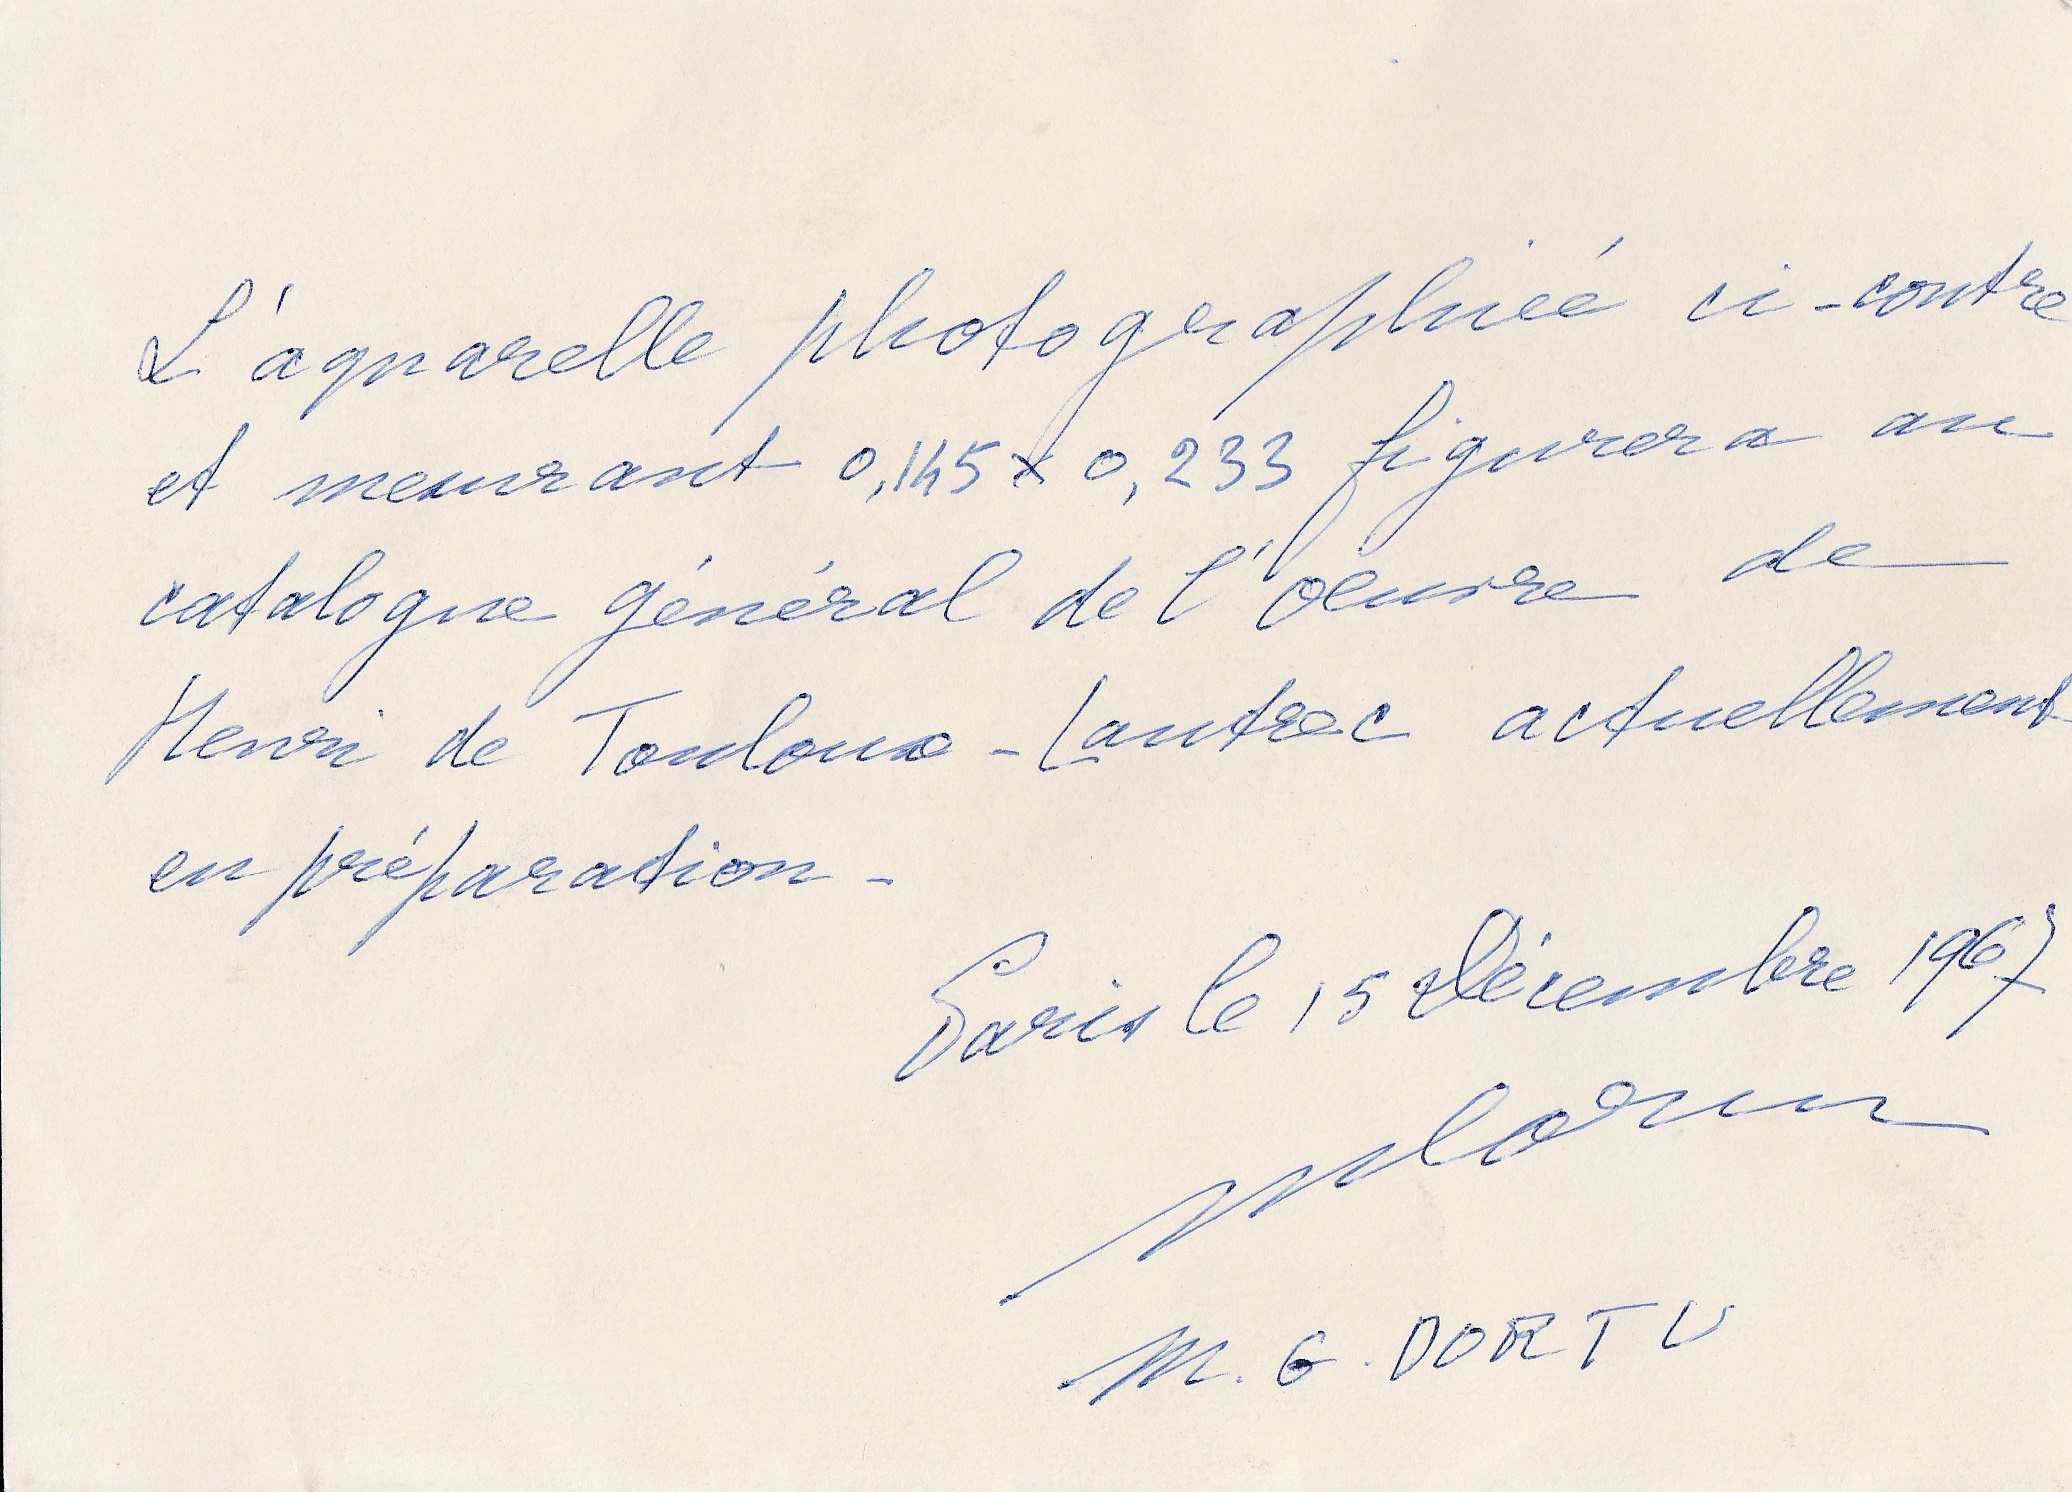 L'aquarelle photographiée ci-contre
et mesurant 0,145 x 0,233 figurera au
catalogue général de l'oeuvre de
Henri de Toulouse-Lautrec actuellement
en préparation -
Paris le 15 Décembre 1967
M. G. DORTU